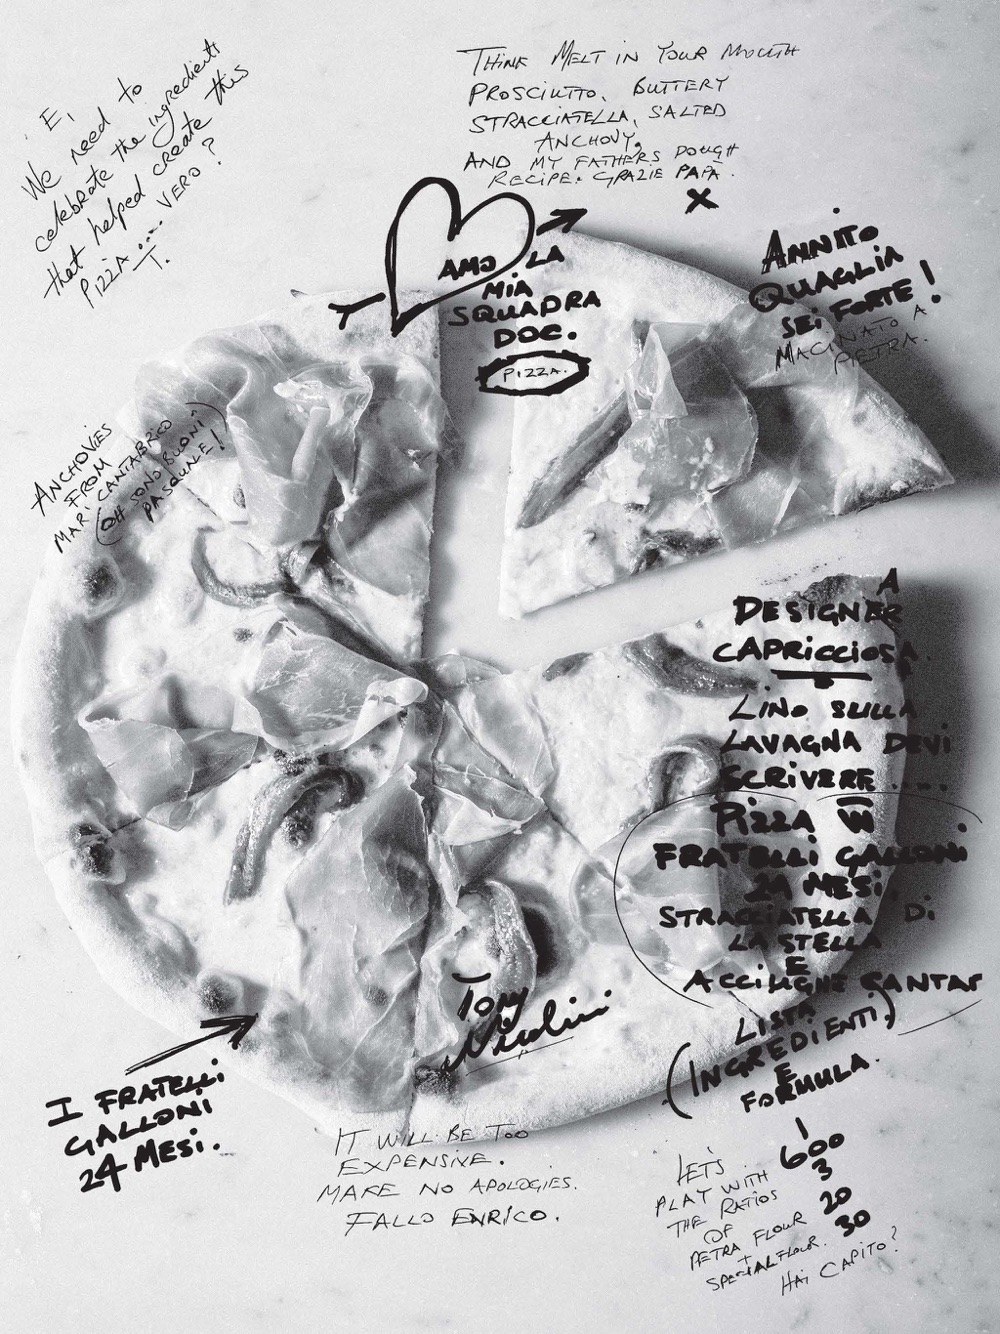 E,
We need to
celebrate the ingredients
that helped create this
PIZZA .... VERO?
T.
THINK MELT IN YOUR MOUTH
PROSCIUTTO, BUTTERY
STRACCIATELLA, SALTED
ANCHOVY,
AND MY FATHERS DOUGH
RECIPE. GRAZIE PAPÀ.
X
AMO LA
MIA
SQUADRA
DOC.
PIZZA.
ANNITO
QUAGLIA
SEI FORTE!
MACINATO A
PIETRA.
ANCHOVIES
FROM
MAR CANTABRICO
(OH SONO BUONI
PASQUALE!)
A
DESIGNER
CAPRICCIOSA.
LINO SULLA
LAVAGNA DEVI
SCRIVERE ....
PIZZA W
FRATELLI GALLONI
24 MESI,
STRACCIATELLA DI
LA STELLA
E
ACCIUGHE CANTAB
LISTA
(INGREDIENTI)
E
FORMULA.
Tony
Nicolini
I FRATELLI
GALLONI
24 MESI.
IT WILL BE TOO
EXPENSIVE.
MAKE NO APOLOGIES.
FALLO ENRICO.
1
600
3
20
30
LET'S
PLAY WITH
THE RATIOS
OF
PETRA FLOUR
+
SPECIAL FLOUR.
HAI CAPITO?